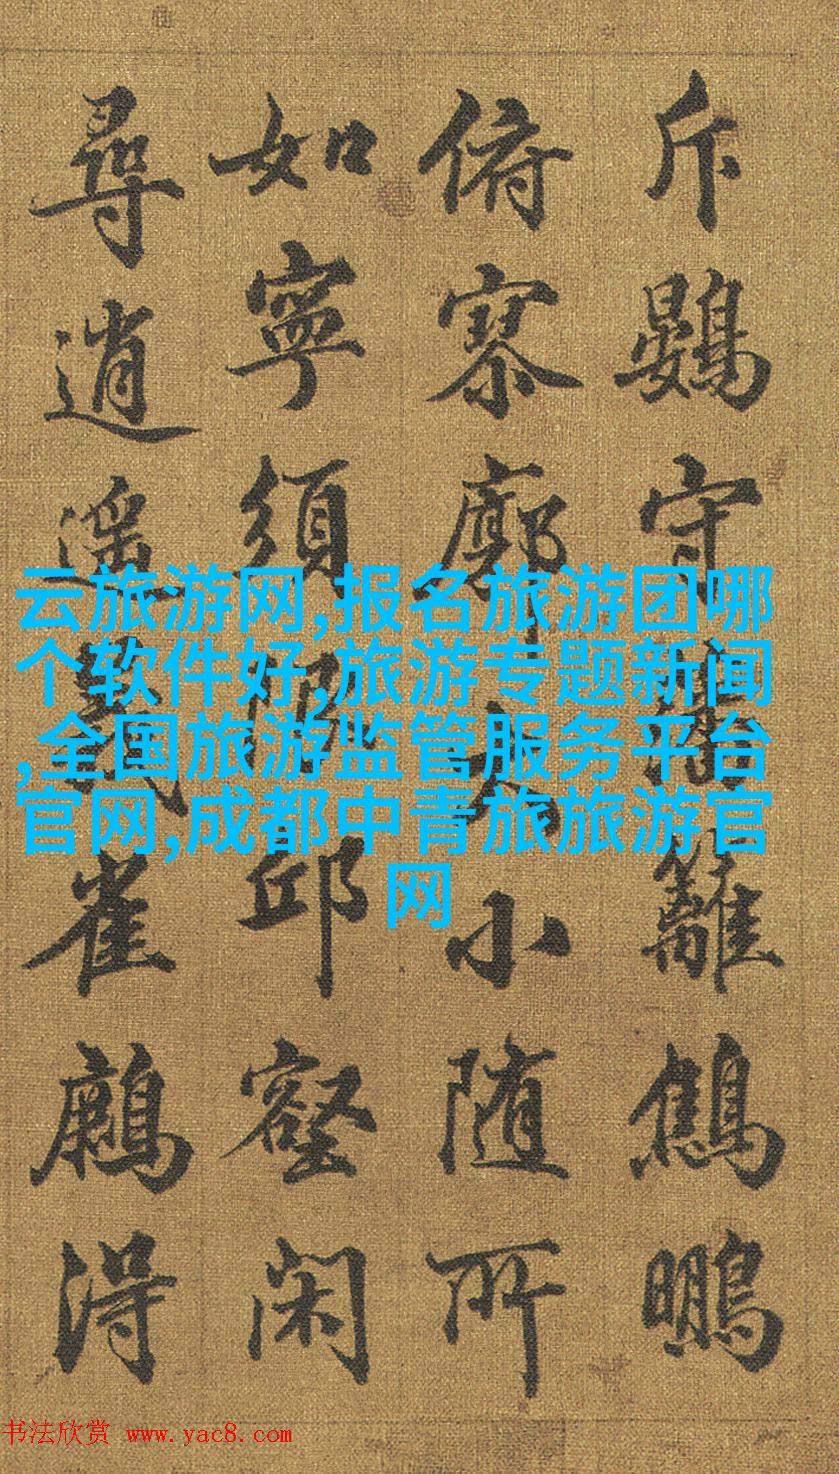 斥鷃守籬鷦鵬
俯寥廓大小随所
如寧須限邱壑閑
尋逍遥義雀得
云旅游网,报名旅游团哪
个软件好,旅游专题新闻
,全国旅游监管服务平台
官网,成都中青旅旅游官
网
书法欣赏 www.yac8.com